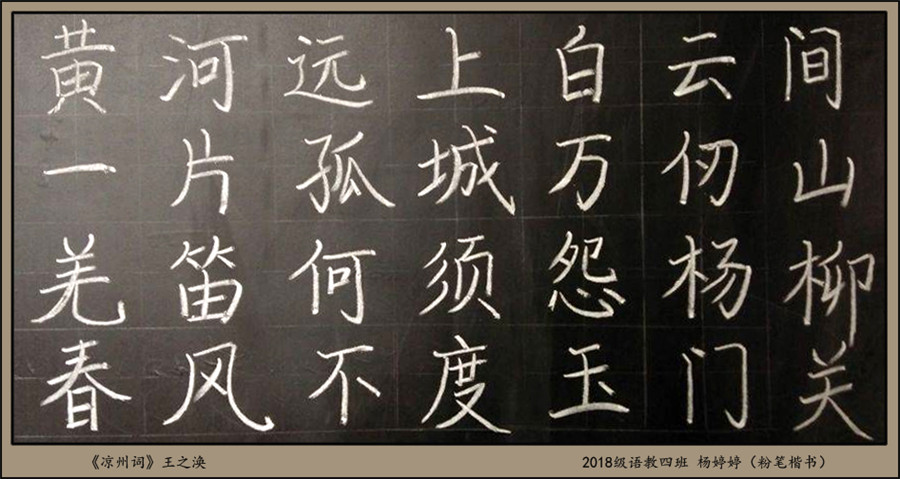 黄河远上白云间
一片孤城万仞山
羌笛何须怨杨柳
春风不度玉门关
《凉州词》王之涣
2018级语教四班 杨婷婷（粉笔楷书）